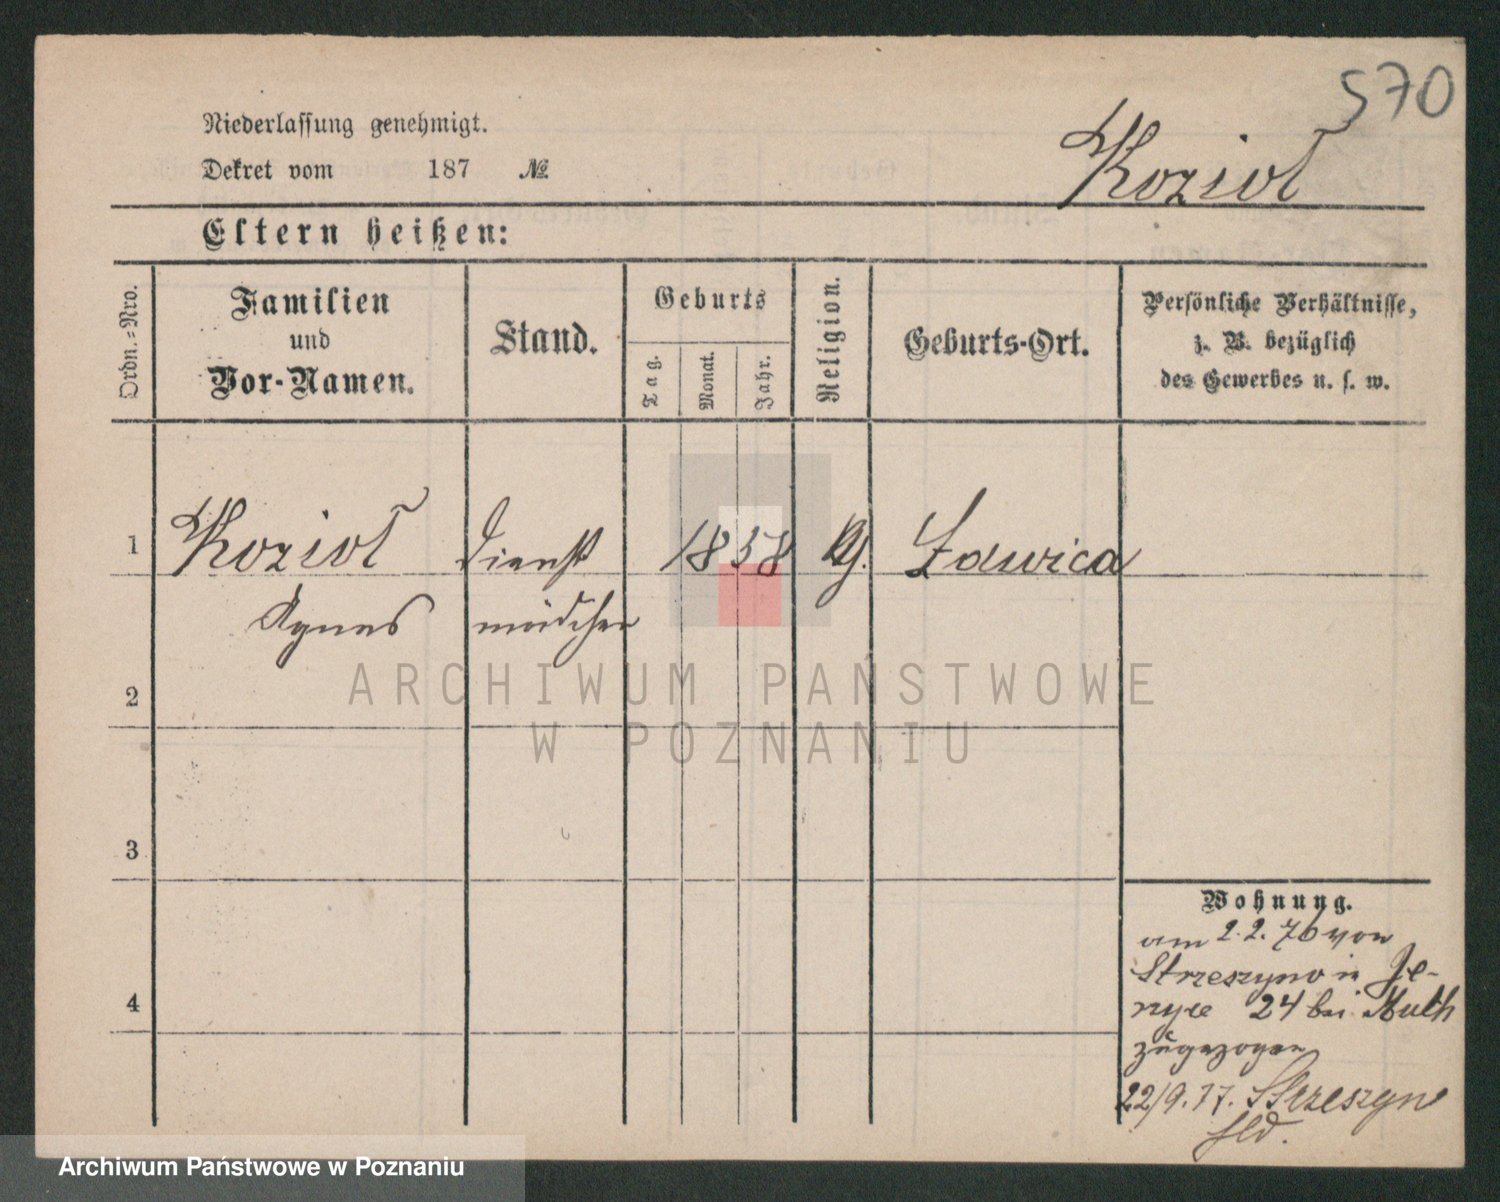 570
Niederlassung genehmigt.
Dekret vom 187 №
Koziol
Eltern heißen:
Ordn.=Nro.
Familien
und
Vor-Namen.
Stand.
Geburts
Tag.
Monat.
Jahr.
Religion.
Geburts-Ort.
Persönliche Verhältnisse,
z. B. bezüglich
des Gewerbes u. s. w.
1 Koziol Dienst 1858 Ławica
Agnes mädchen
2
3
4
Wohnung.
am 2.2.76 von
Strzeszyno in Je-
rzyce 24 bei Muth
zugezogen
22/9.77. Strzeszyno
ARCHIWUM PAŃSTWOWE
W POZNANIU
Archiwum Państwowe w Poznaniu